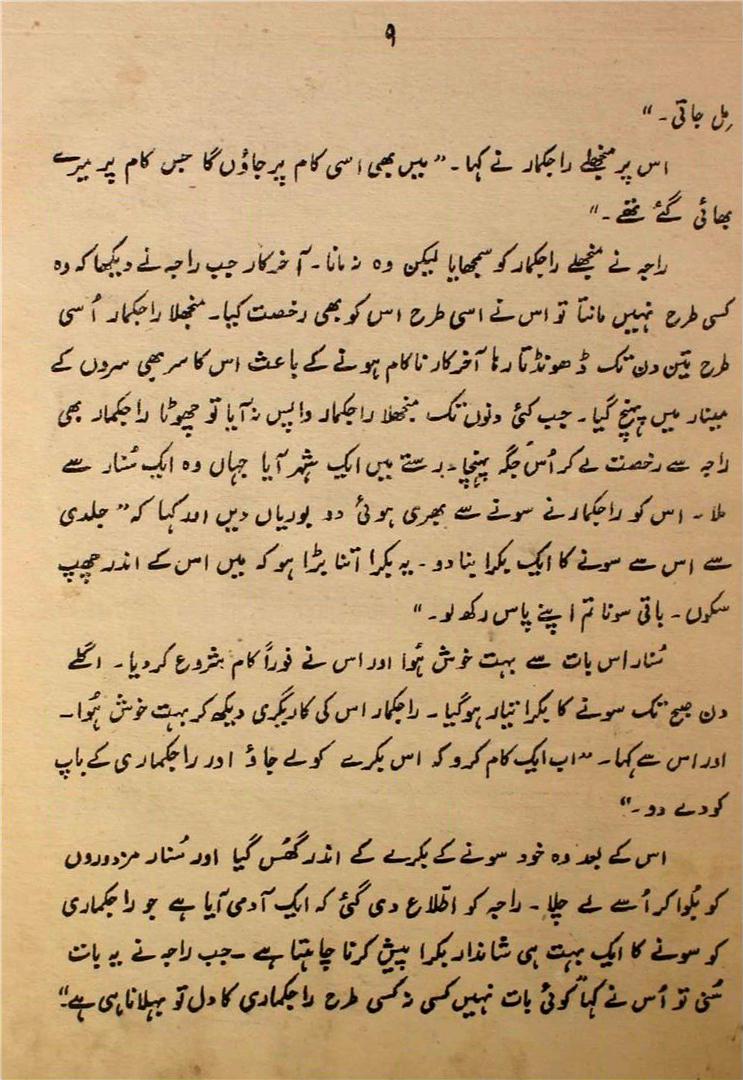 ۹
مِل جاتی۔"
اس پر منجھلے راجکمار نے کہا۔ "میں بھی اسی کام پر جاؤں گا جس کام پر میرے
بھائی گئے تھے۔"
راجہ نے منجھلے راجکمار کو سمجھایا لیکن وہ نہ مانا۔ آخر کار جب راجہ نے دیکھا کہ وہ
کسی طرح نہیں مانتا تو اس نے اسی طرح اس کو بھی رخصت کیا۔ منجھلا راجکمار اُسی
طرح تین دن تک ڈھونڈتا رہا آخر کار ناکام ہونے کے باعث اس کا سر بھی سروں کے
مینار میں پہنچ گیا۔ جب کئی دنوں تک منجھلا راجکمار واپس نہ آیا تو چھوٹا راجکمار بھی
راجہ سے رخصت لے کر اُس جگہ پہنچا۔ رستے میں ایک شہر آیا جہاں وہ ایک سُنار سے
ملا۔ اس کو راجکمار نے سونے سے بھری ہوئی دو بوریاں دیں اور کہا کہ "جلدی
سے اس سے سونے کا ایک بکرا بنا دو۔ یہ بکرا اتنا بڑا ہو کہ میں اس کے اندر چھپ
سکوں۔ باقی سونا تم اپنے پاس رکھ لو۔"
سُنار اس بات سے بہت خوش ہُوا اور اس نے فوراً کام شروع کر دیا۔ اگلے
دن صبح تک سونے کا بکرا تیار ہو گیا۔ راجکمار اس کی کاریگری دیکھ کر بہت خوش ہُوا۔
اور اس سے کہا۔ "اب ایک کام کرو کہ اس بکرے کو لے جاؤ اور راجکماری کے باپ
کو دے دو۔"
اس کے بعد وہ خود سونے کے بکرے کے اندر گھُس گیا اور سُنار مزدوروں
کو بُلوا کر اُسے لے چلا۔ راجہ کو اطّلاع دی گئی کہ ایک آدمی آیا ہے جو راجکماری
کو سونے کا ایک بہت ہی شاندار بکرا پیش کرنا چاہتا ہے۔ جب راجہ نے یہ بات
سُنی تو اُس نے کہا "کوئی بات نہیں کسی نہ کسی طرح راجکماری کا دل تو بہلانا ہی ہے۔"